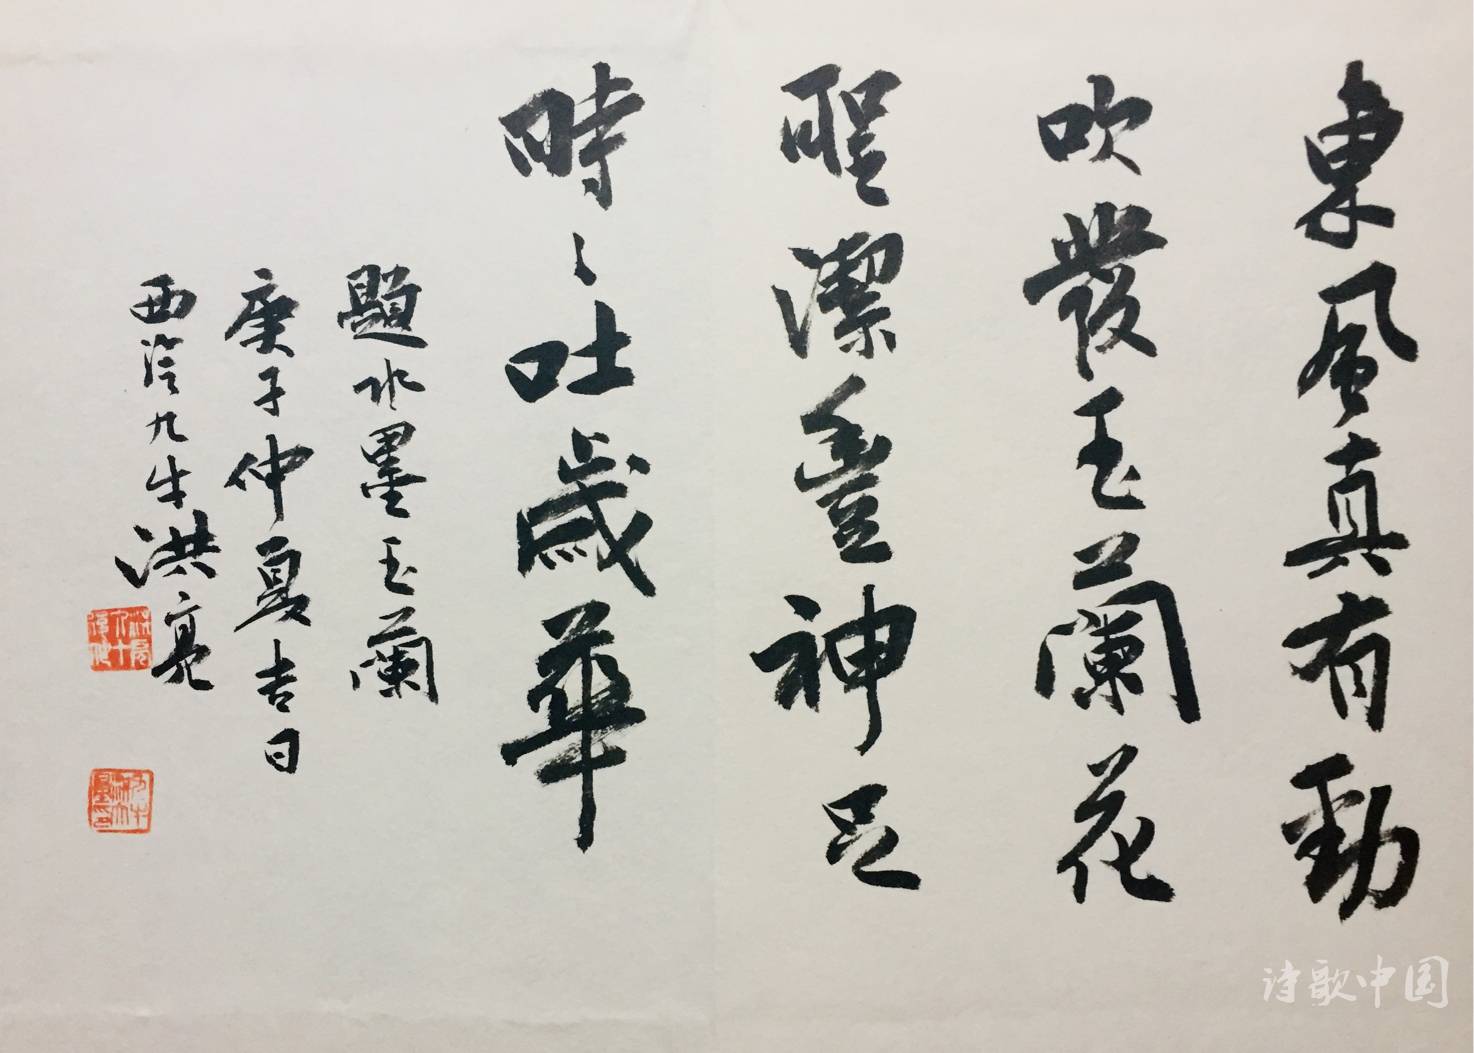 東風真有勁
吹發玉蘭花
聖潔豐神足
時々吐歲華
題水墨玉蘭
庚子仲夏吉日
西泠九牛洪亮
诗歌中国